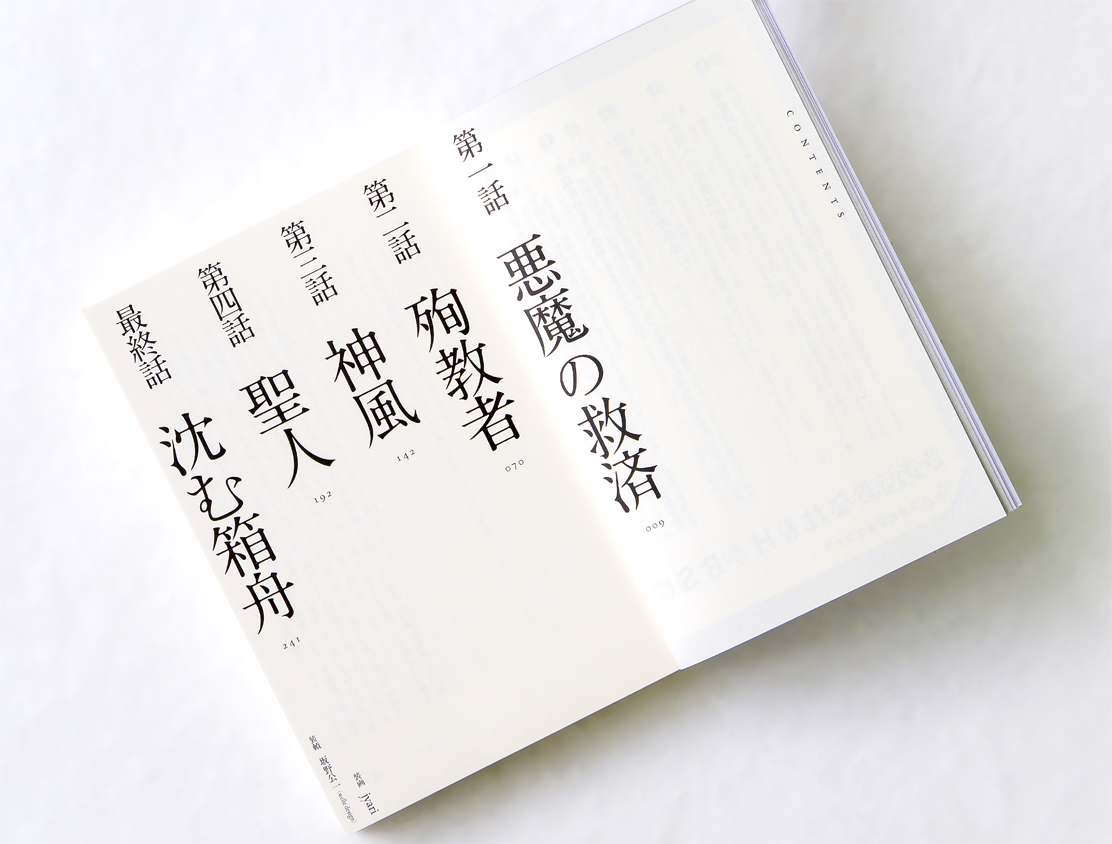 CONTENTS
第一話 悪魔の救済 009
第二話 殉教者 070
第三話 神風 142
第四話 聖人 192
最終話 沈む箱舟 241
装画 jyari
装幀 坂野公一